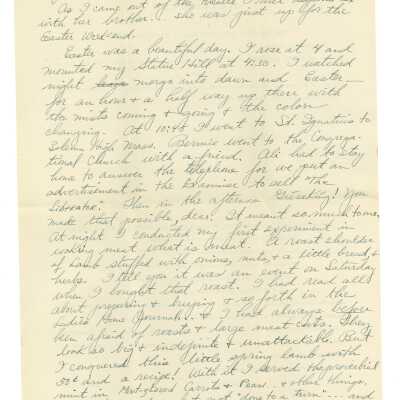 As I came out of the
with her brother... she was just up for the
Easter week-end.
Easter was a beautiful day. I arose at 4 and
mounted my Statue Hill at 4:30. I watched
night merge into dawn and Easter —
for an hour & a half way up there with
the mists coming & going & the colors
changing. At 10:45 I went to St. Ignatius to
Solemn High Mass. Bernice went to the Congrega-
tional Church with a friend. Ali had to stay
home to answer the telephone for we put an
advertisement in the Examiner to sell "The
Then in the afternoon You
made that possible, dear. It meant so much to me.
At night I conducted my first experiment in
cooking meat what is meat. A roast shoulder
of lamb stuffed with onions, nuts, & a little bread, &
herbs. I tell you it was an event on Saturday
when I bought that roast. I had read all
about preparing & buying & so forth in the
Ladies Home Journal... & I had always before
been afraid of roasts & large meat cuts. They
look so big & indefinite & unattackable. But
I conquered this little spring lamb with
50¢ and a recipe! With it I served the proverbial
mint in Mint-glazed Carrots & Peas... other things,
& not "done to a turn"... and